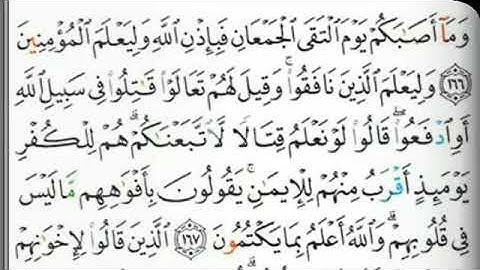 وَمَآ أَصَٰبَكُمْ يَوْمَ ٱلْتَقَى ٱلْجَمْعَانِ فَبِإِذْنِ ٱللَّهِ وَلِيَعْلَمَ ٱلْمُؤْمِنِينَ
﴿١٦٦﴾ وَلِيَعْلَمَ ٱلَّذِينَ نَافَقُوا۟ ۚ وَقِيلَ لَهُمْ تَعَالَوْا۟ قَٰتِلُوا۟ فِى سَبِيلِ ٱللَّهِ
أَوِ ٱدْفَعُوا۟ ۖ قَالُوا۟ لَوْ نَعْلَمُ قِتَالًا لَّٱتَّبَعْنَٰكُمْ ۗ هُمْ لِلْكُفْرِ
يَوْمَئِذٍ أَقْرَبُ مِنْهُمْ لِلْإِيمَٰنِ ۚ يَقُولُونَ بِأَفْوَٰهِهِم مَّا لَيْسَ
فِى قُلُوبِهِمْ ۗ وَٱللَّهُ أَعْلَمُ بِمَا يَكْتُمُونَ ﴿١٦٧﴾ ٱلَّذِينَ قَالُوا۟ لِإِخْوَٰنِهِمْ